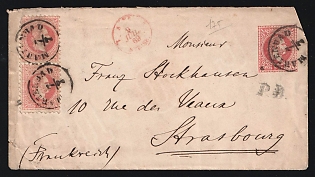 125
Monsieur
Franz Stockhausen
10 rue des Veaux
Strasbourg
(Frankreich)
P.D.